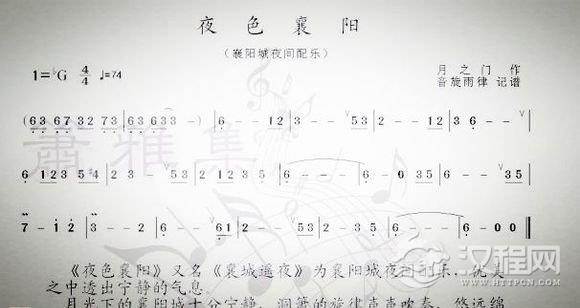 夜色襄阳
(襄阳城夜间配乐)
1=♭G 4/4 ♩=74
月之门 作
音旋雨律 记谱
(63 67 32 73 | 63 633 - | 6 - - 12 | 3 - - 53 | 2 - - 12 | 3 6 - -35
6 123 54 23 | 3 - - 12 | 3 - - 53 | 2 - - 123 | 6 - - - | 6 - - 535
7 - i2 | 3 - - 6 | 3 - - 53 | 2 - - 35 | 6 - - - | 6 - 00 ‖
萧雅集
《夜色襄阳》又名《襄城遥夜》为襄阳城夜间配乐，优美
之中透出宁静的气息。
月光下的襄阳城十分宁静，洞箫的旋律声声吹奏，悠远绵
汉程网